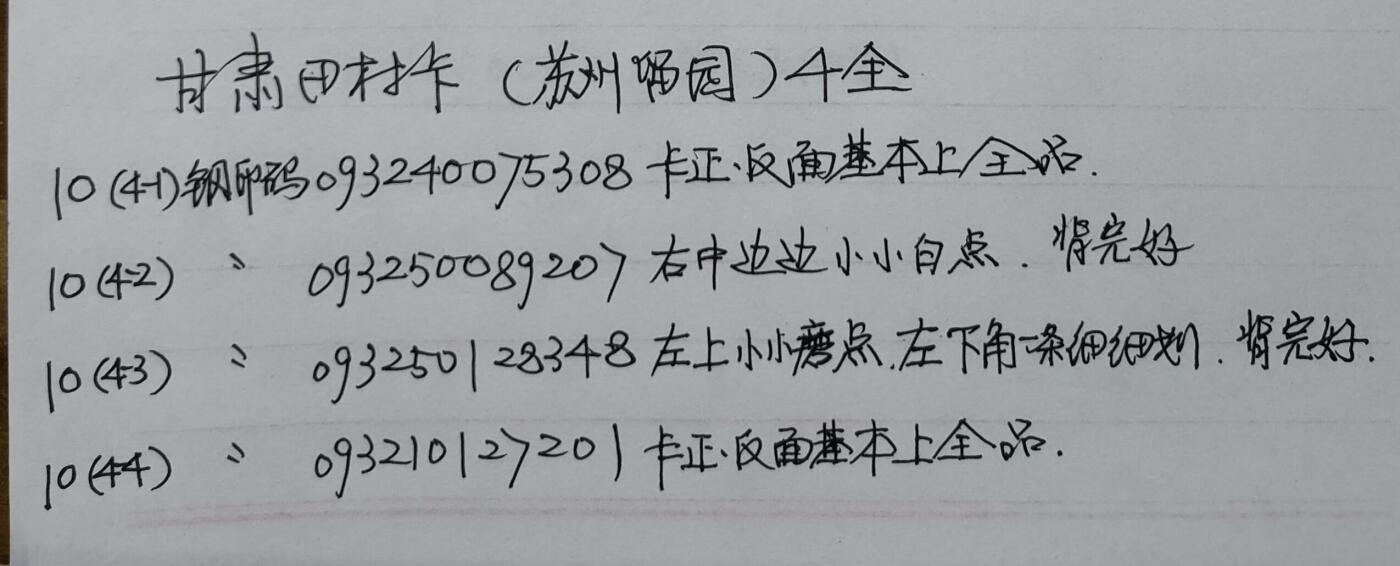 甘肃田村卡（苏州留园）4全
10(4-1)钢印码093240075308卡正.反面基本上全品.
10(4-2) 〃 093250089207右中边边小小白点.背完好
10(4-3) 〃 093250128348左上小小磨点.左下角一条细细划.背完好.
10(4-4) 〃 093210127201卡正.反面基本上全品.